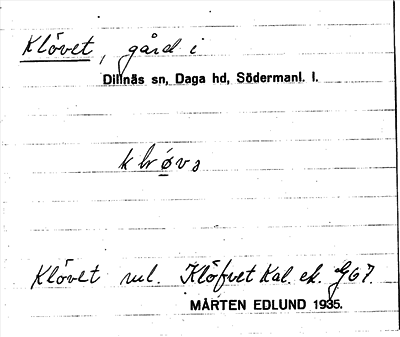 Klövet, gård i
Dillnäs sn, Daga hd, Södermanl. l.
Klövet rul. Klöfvet Kal. ek. G 67.
MÅRTEN EDLUND 1935.